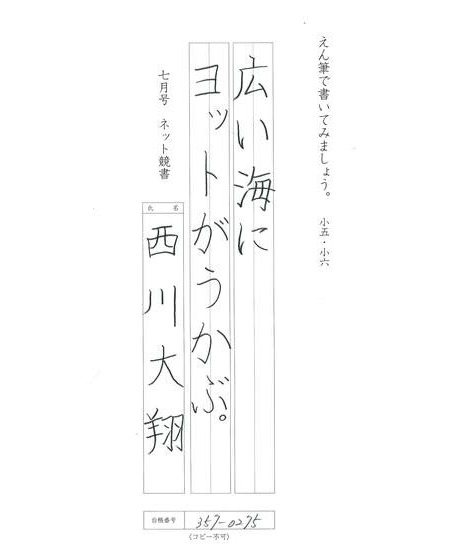 えん筆で書いてみましょう。 小五・小六
広い海に
ヨットがうかぶ。
七月号 ネット競書
氏名
西川大翔
台帳番号 357-0275
(コピー不可)